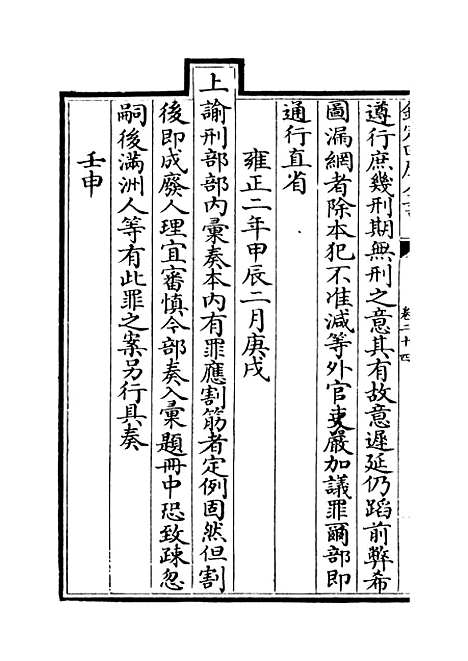 卷二十四
遵行庶幾刑期無刑之意其有故意遲延仍蹈前弊希
圖漏網者除本犯不准減等外官吏嚴加議罪爾部即
通行直省
雍正二年甲辰二月庚戌
上諭刑部部內彙奏本內有罪應割筋者定例固然但割
後即成廢人理宜審慎今部奏入彙題冊中恐致疎忽
嗣後滿洲人等有此罪之案另行具奏
壬申